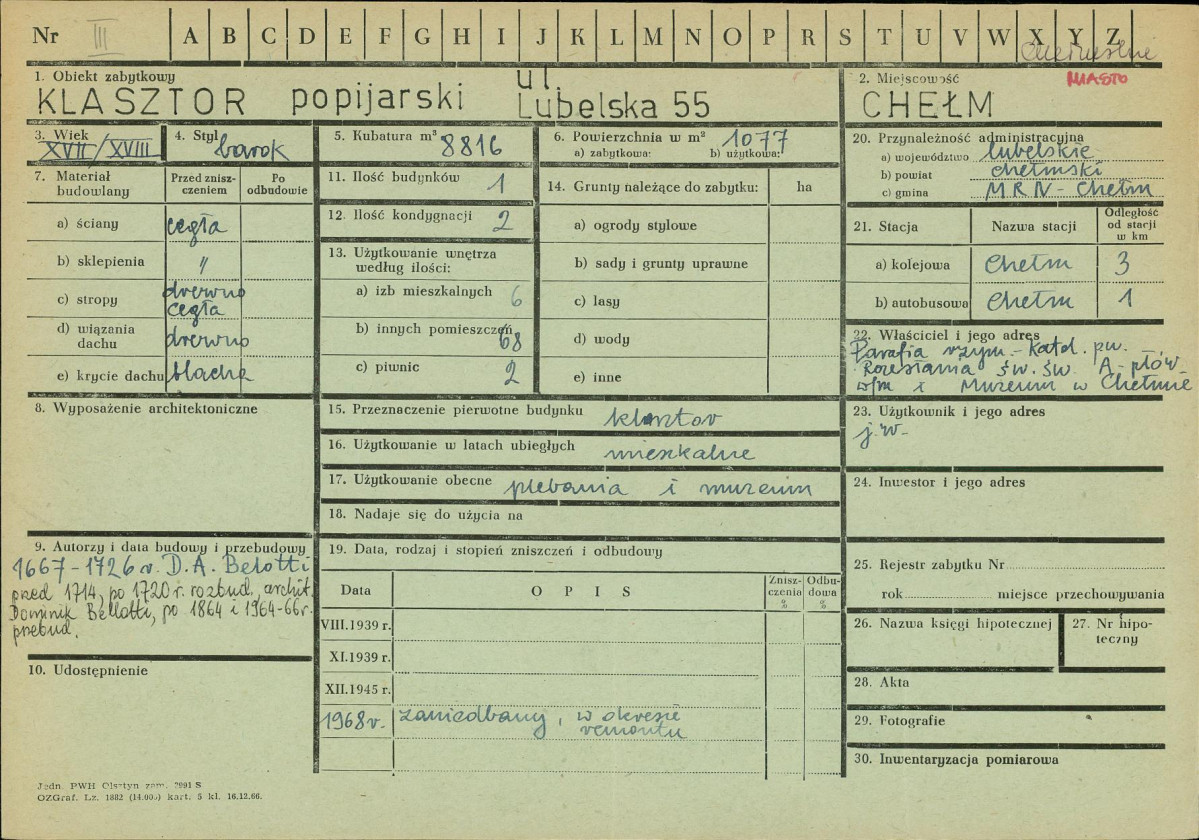 Nr III A B C D E F G H I J K L M N O P R S T U V W X Y Z
1. Obiekt zabytkowy
KLASZTOR popijarski ul. Lubelska 55
2. Miejscowość MIASTO
CHEŁM
3. Wiek
XVII/XVIII
4. Styl barok
5. Kubatura m³ 8816
6. Powierzchnia w m² 1077
a) zabytkowa: b) użytkowa:
7. Materiał budowlany
Przed znisz-czeniem
Po odbudowie
a) ściany cegła
b) sklepienia "
c) stropy drewno cegła
d) wiązania dachu drewno
e) krycie dachu blacha
8. Wyposażenie architektoniczne
9. Autorzy i data budowy i przebudowy
1667-1726 r. D. A. Belotti
przed 1714, po 1720 r. rozbud. archit.
Dominik Bellotti, po 1864 i 1964-66 r.
przebud.
10. Udostępnienie
11. Ilość budynków 1
12. Ilość kondygnacji 2
13. Użytkowanie wnętrza
według ilości:
a) izb mieszkalnych 6
b) innych pomieszczeń 68
c) piwnic 2
14. Grunty należące do zabytku: ha
a) ogrody stylowe
b) sady i grunty uprawne
c) lasy
d) wody
e) inne
15. Przeznaczenie pierwotne budynku klasztor
16. Użytkowanie w latach ubiegłych mieszkalne
17. Użytkowanie obecne plebania i muzeum
18. Nadaje się do użycia na
19. Data, rodzaj i stopień zniszczeń i odbudowy
Data OPIS Znisz-czenia % Odbu-dowa %
VIII.1939 r.
XI.1939 r.
XII.1945 r.
1968 r. zaniedbany, w okresie
remontu
20. Przynależność administracyjna
a) województwo lubelskie
b) powiat chełmski
c) gmina MRN - Chełm
21. Stacja Nazwa stacji Odległość od stacji w km
a) kolejowa Chełm 3
b) autobusowa Chełm 1
22. Właściciel i jego adres
Parafia rzym.-katol. pw.
Rozesłania św. św. A-płów
i Muzeum w Chełmie
23. Użytkownik i jego adres
j.w.
24. Inwestor i jego adres
25. Rejestr zabytku Nr
rok miejsce przechowywania
26. Nazwa księgi hipotecznej
27. Nr hipo-teczny
28. Akta
29. Fotografie
30. Inwentaryzacja pomiarowa
Jedn. PWH Olsztyn zam. 2991 S
OZGraf. Lz. 1882 (14.000) kart. 5 kl. 16.12.66.